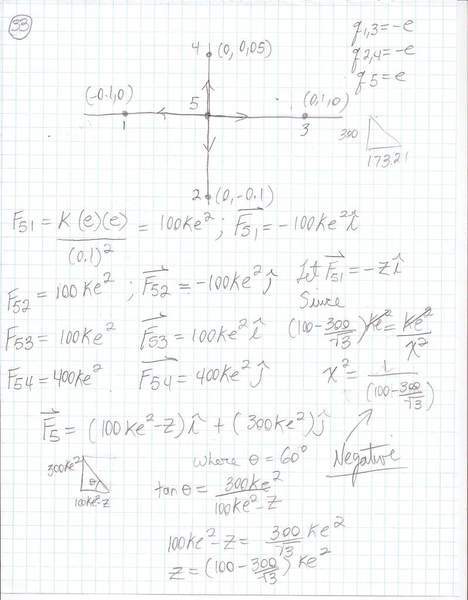 33
q₁,₃ = -e
q₂,₄ = -e
q₅ = e
4 (0, 0,05)
(-0.1,0) 5 (0,1,0)
1 3
300
173.21
2 (0,-0.1)
F₅₁ = K(e)(e)/(0.1)² = 100Ke² ; F⃗₅₁ = -100Ke² î
F₅₂ = 100Ke² ; F⃗₅₂ = -100Ke² ĵ
Let F⃗₅₁ = -z î
Since
F₅₃ = 100Ke² F⃗₅₃ = 100Ke² î
(100 - 300/√3) Ke² = Ke²/x²
F₅₄ = 400Ke² F⃗₅₄ = 400Ke² ĵ
x² = 1/(100 - 300/√3)
F⃗₅ = (100Ke² - z) î + (300Ke²) ĵ
Negative
300Ke²
θ
100Ke²-z
where θ = 60°
tan θ = 300Ke²/100Ke² - z
100Ke² - z = 300/√3 Ke²
z = (100 - 300/√3) Ke²